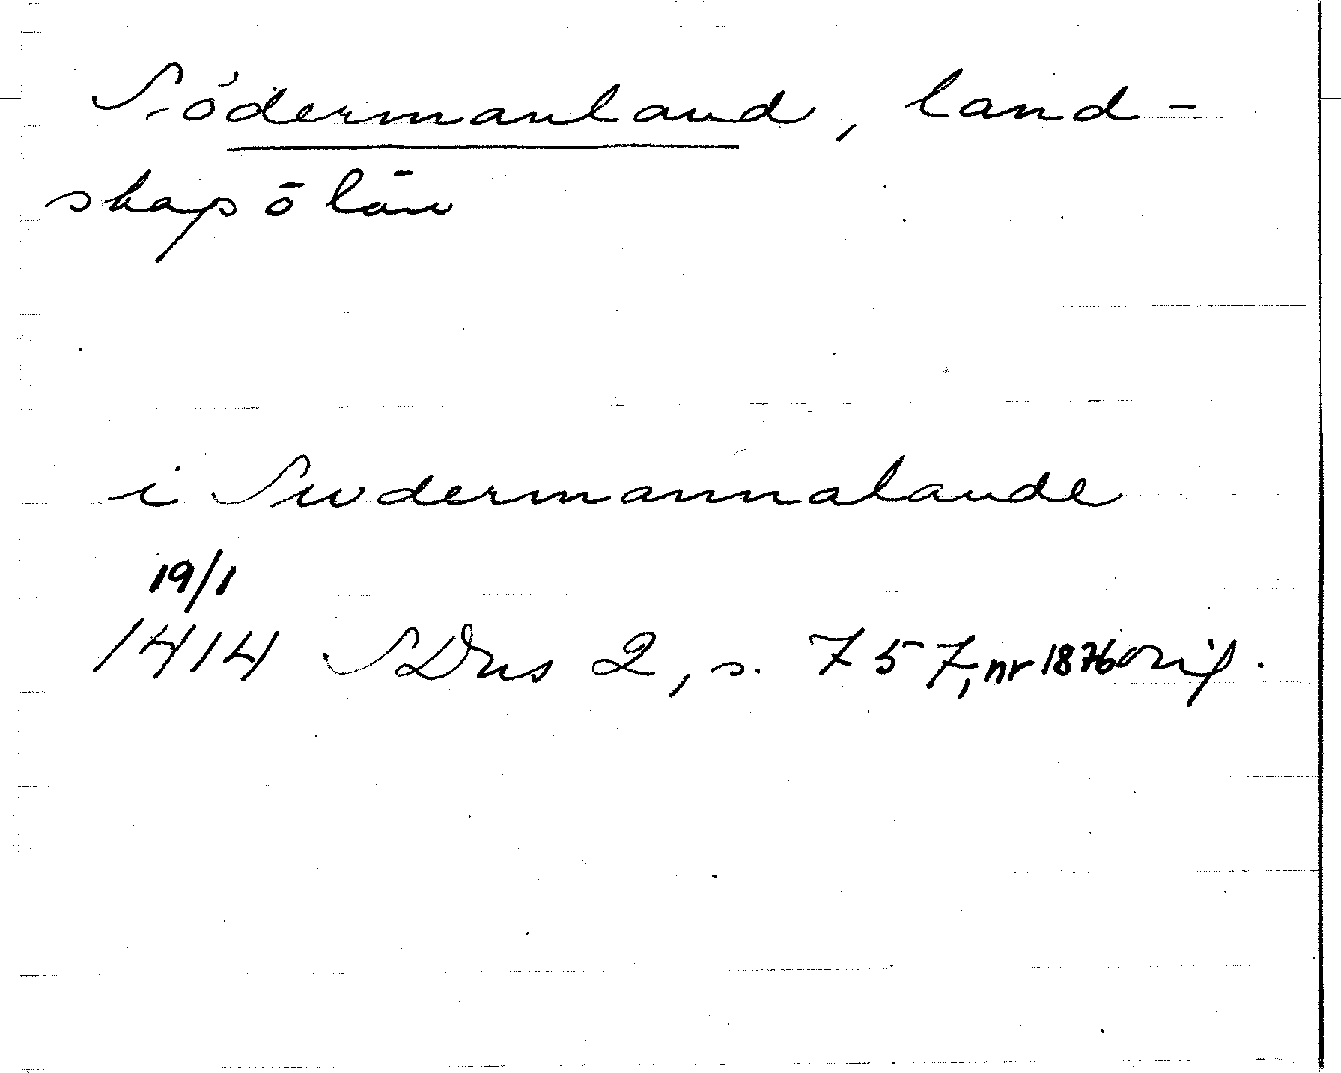 Södermanland, land-
skap ō län
i Sudermannalande
19/1
1414 SDns 2, s. 757, nr 1876 orig.